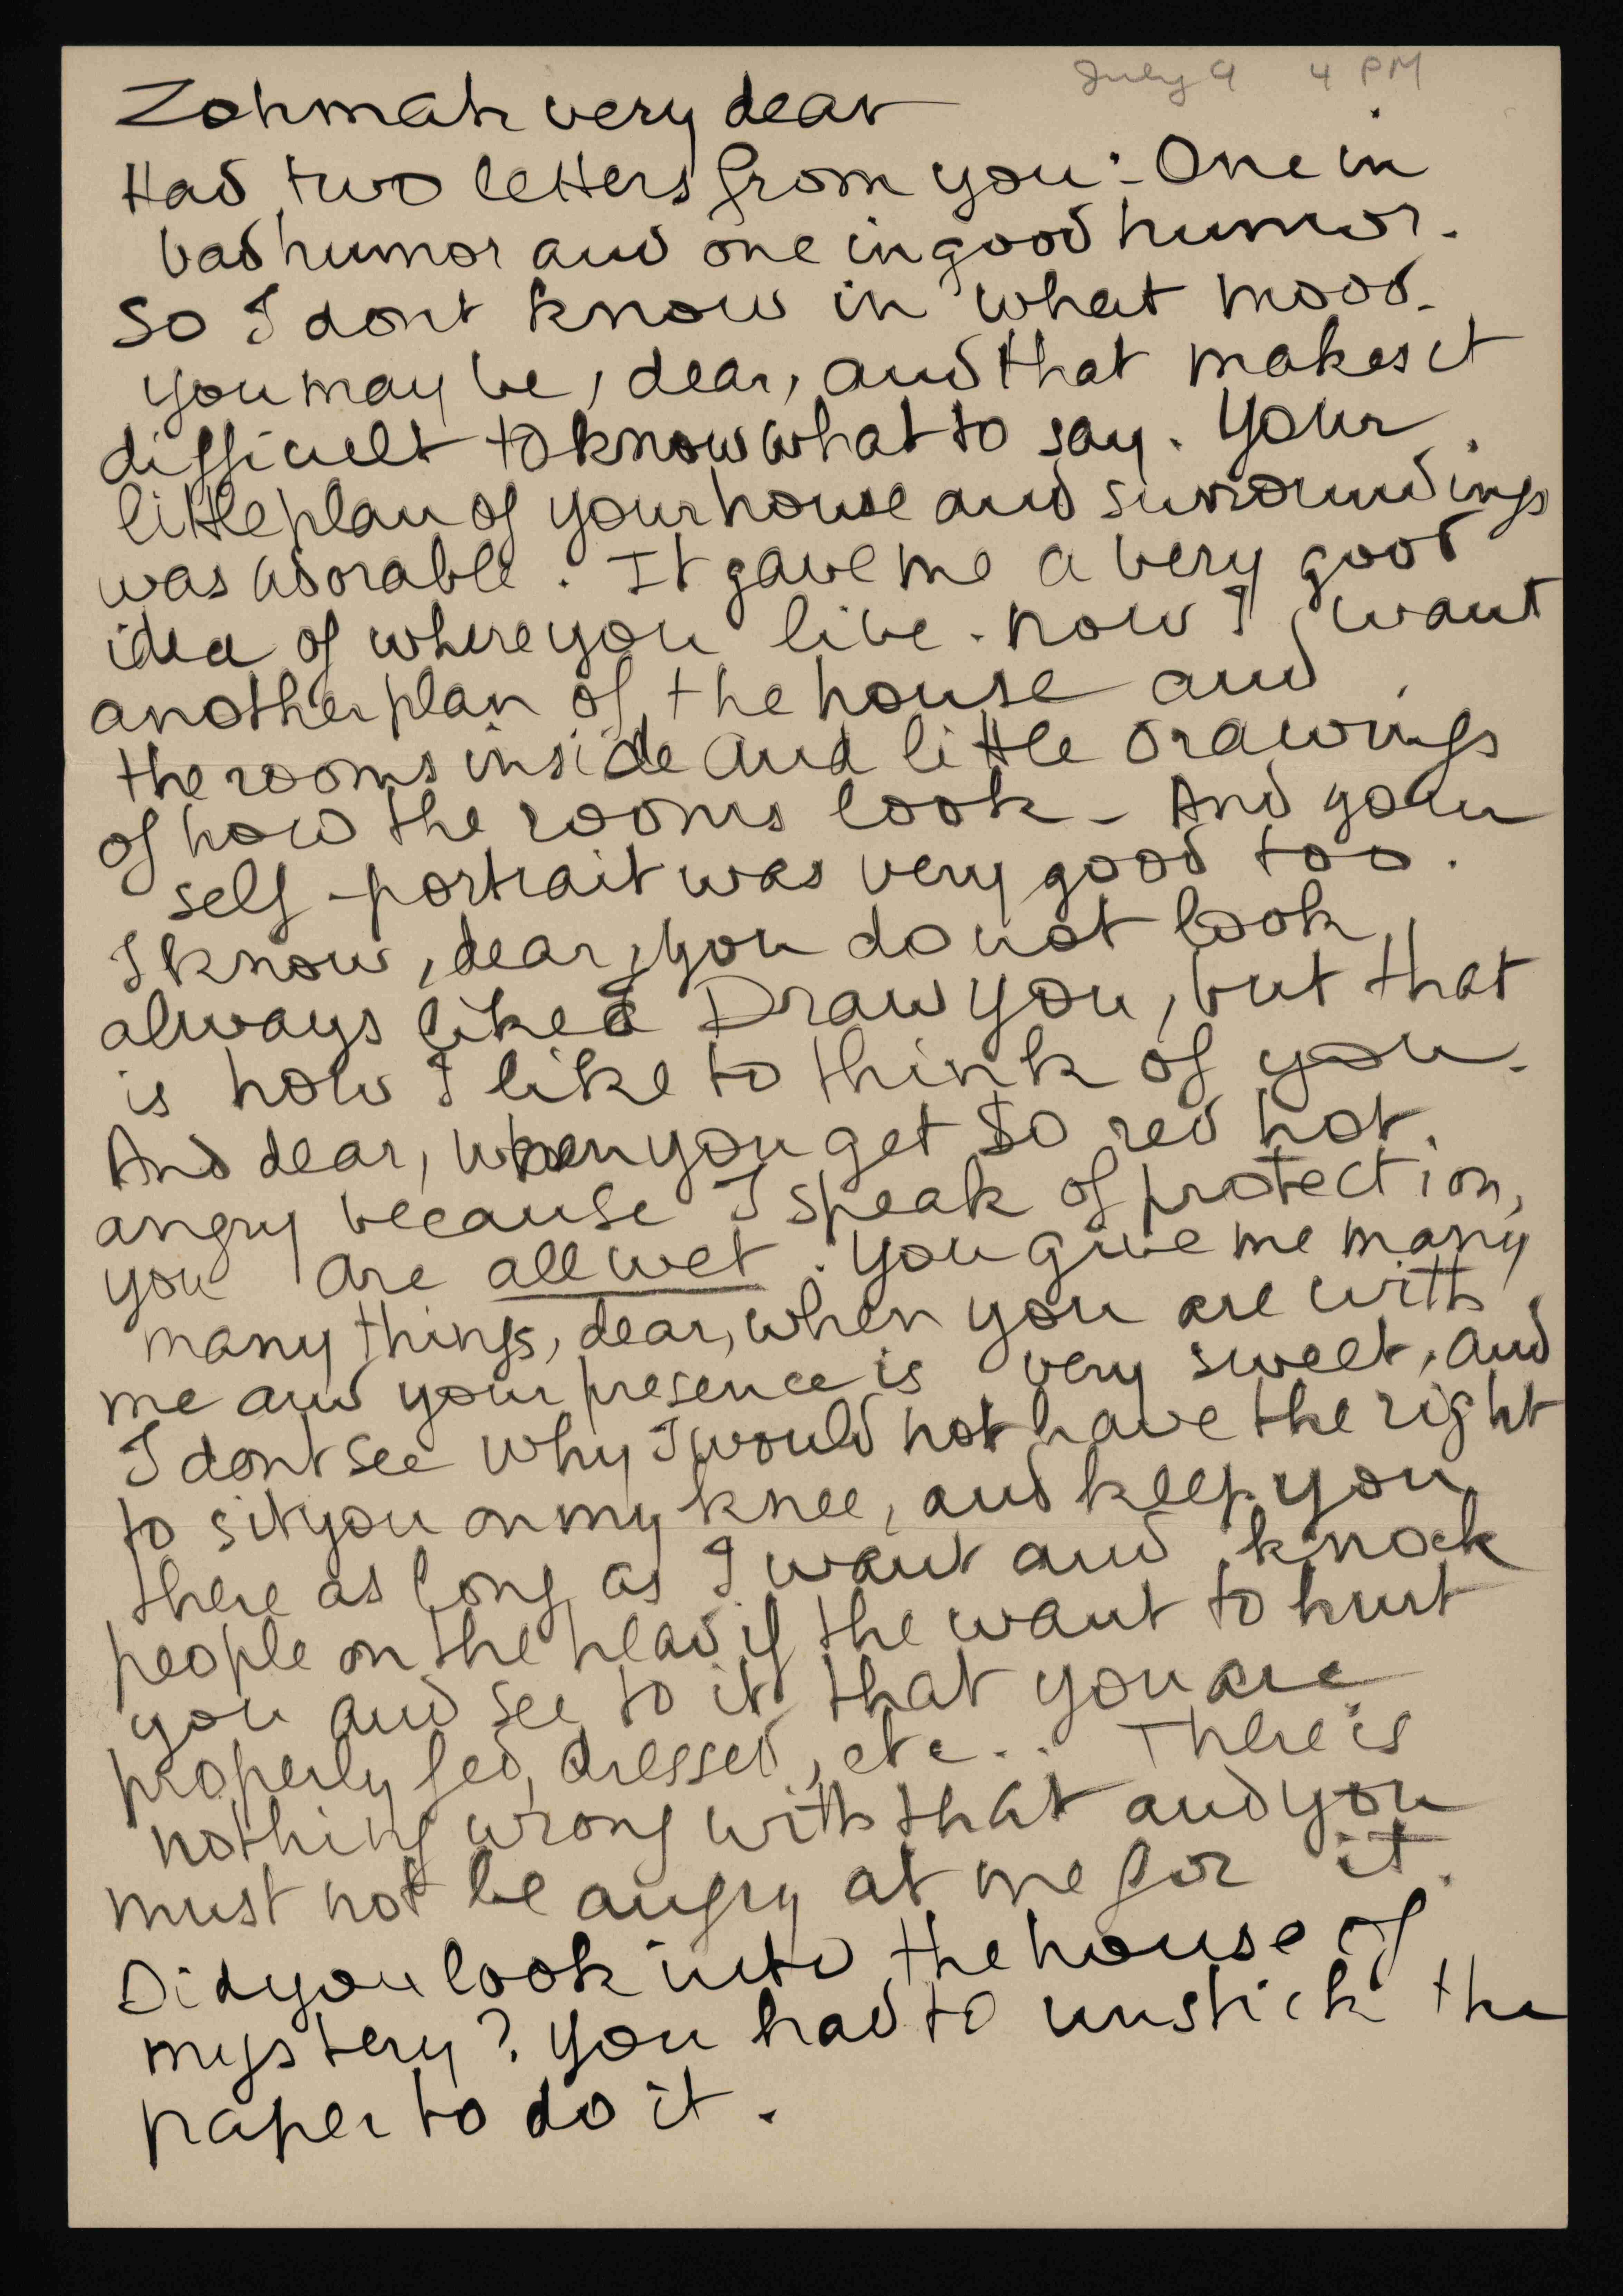 July 9 4 PM
Zohmah very dear
Had two letters from you: One in
bad humor and one in good humor.
So I dont know in what mood
you may be, dear, and that makes it
difficult to know what to say. Your
little plan of your house and surroundings
was adorable. It gave me a very good
idea of where you live. now I want
another plan of the house and
the rooms inside and little drawings
of how the rooms look - And your
self-portrait was very good too.
I know, dear, you do not look
always like I Draw you, but that
is how I like to think of you.
And dear, when you get so red hot
angry because I speak of protection,
you are all wet. You give me many
many things, dear, when you are with
me and your presence is very sweet, and
I dont see why I would not have the right
to sit you on my knee, and keep you
there as long as I want and knock
people on the head if the want to hurt
you and see to it that you are
properly fed, dressed, etc.. There is
nothing wrong with that and you
must not be angry at me for it.
Did you look into the house of
mystery? You had to unstick the
paper to do it.